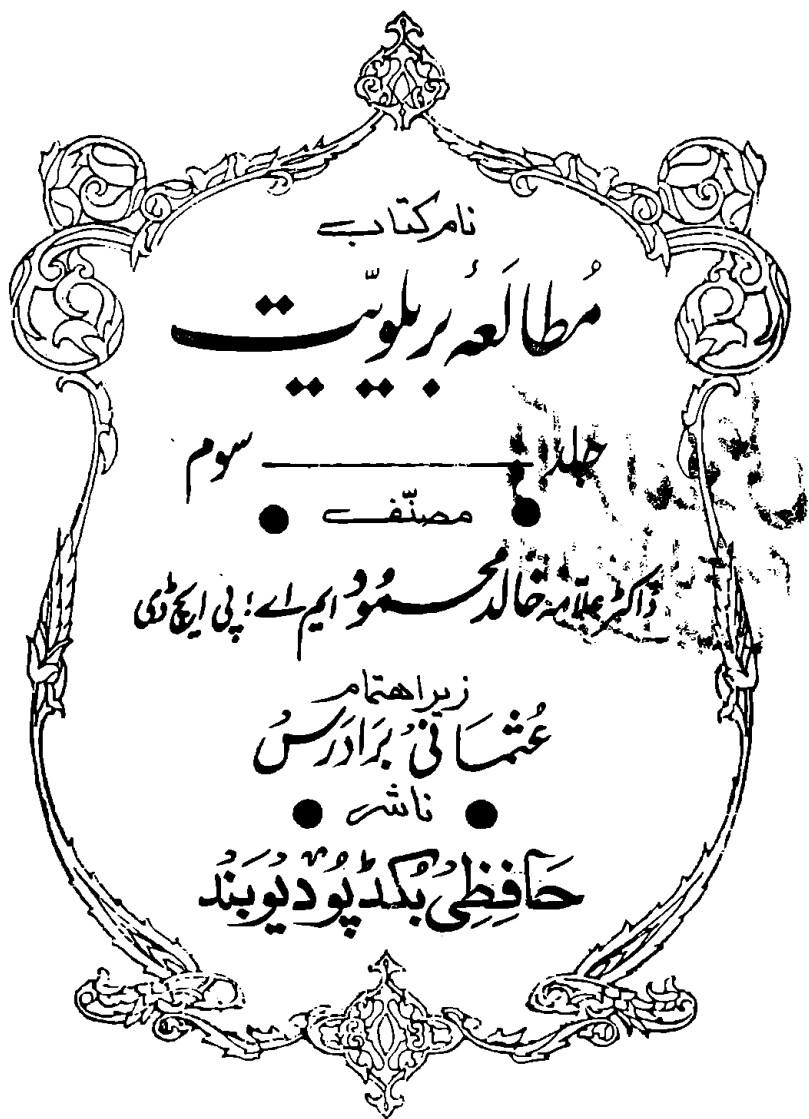 نام کتاب
مُطالَعۂ بریلویّت
جلد سوم
مصنّف
ڈاکٹر علّامہ خالد محمود ایم اے؛ پی ایچ ڈی
زیر اهتمام
عُثمانی بَرادَرس
ناشر
حَافِظِی بُکڈپُو دیُوبَند